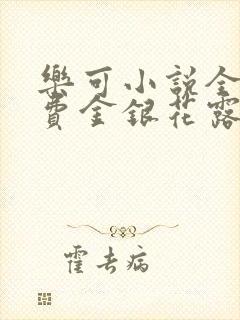 樂可小說全
費金銀花露
霍去病